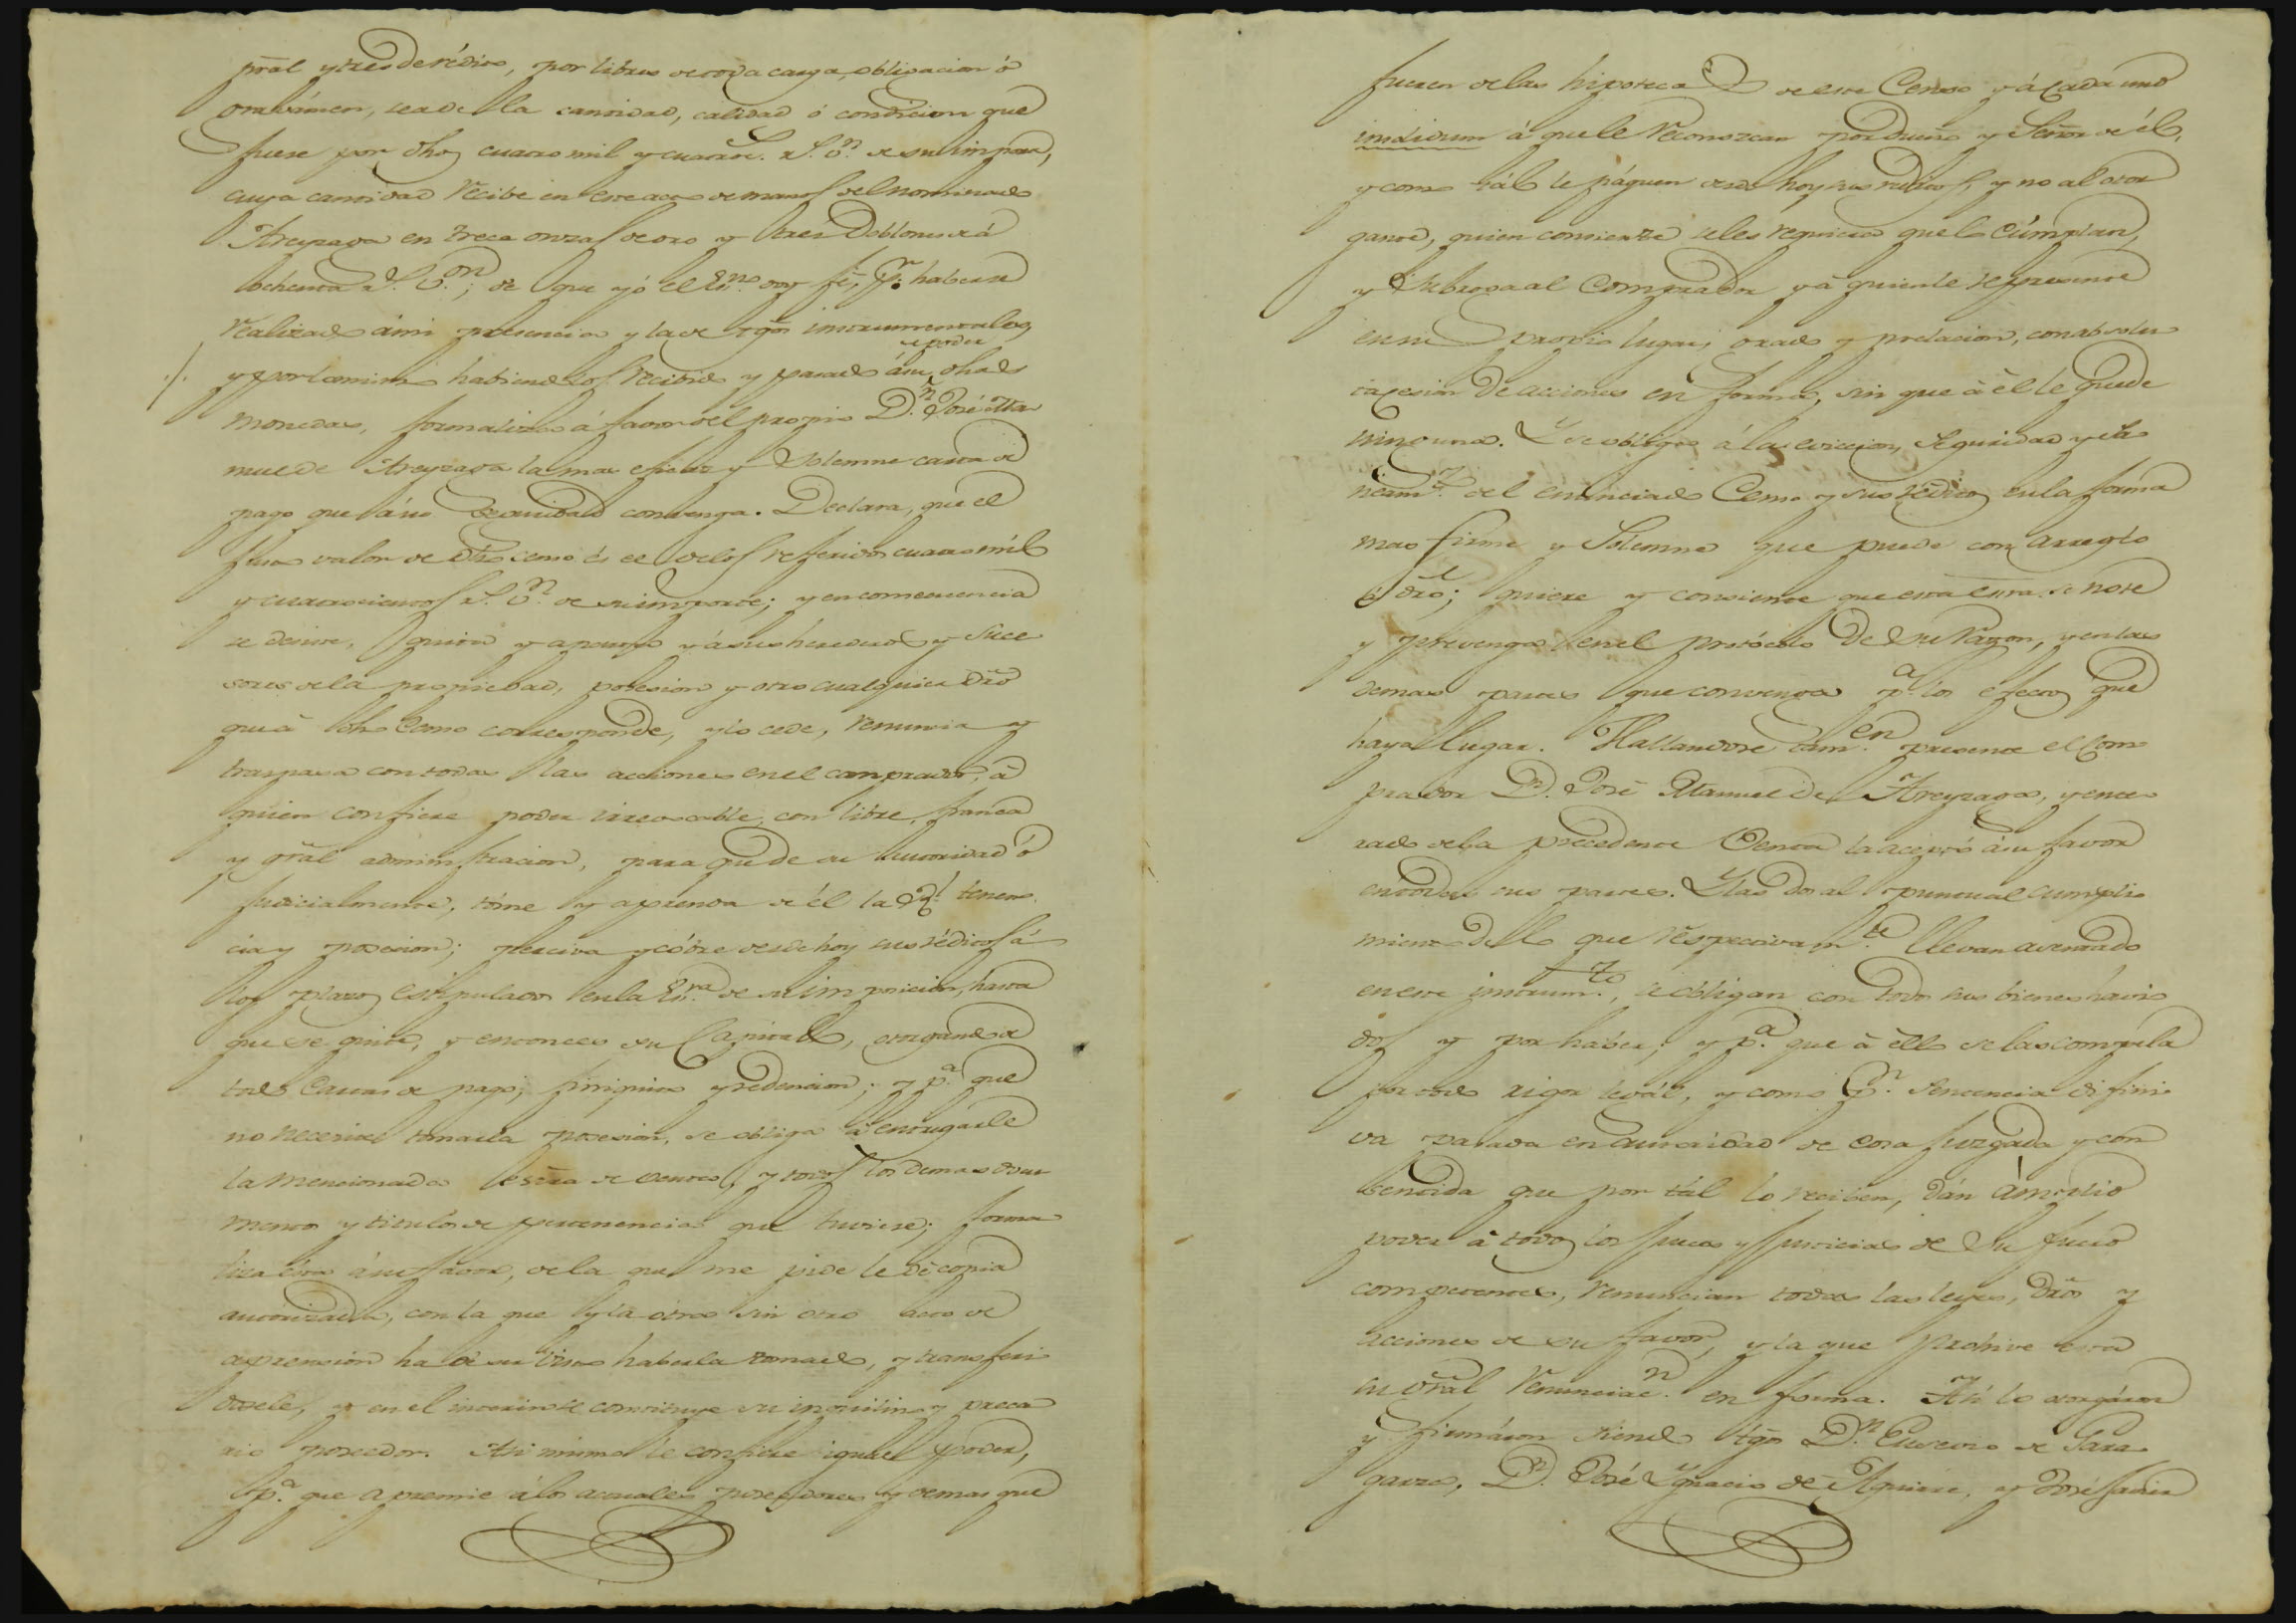 pral. y tres de réditos, por libres de toda carga, obligacion ó
gravámen, sea de la cantidad, calidad ó condicion que
fuese por dhos cuatro mil y cuatroc.s r.s v.n de su importe,
cuya cantidad recibe en este acto de manos del nominado
Areyzaga en trece onzas de oro y tres Doblones de á
ochenta r.s v.on; de que yó el Ess.no doy fé, p.r haberse
realizado á mi presencia y la de tgos instrumentales,
y por lo mismo habiendolos recibido y pasado á su poder dhas
monedas, formaliza á favor del propio D.n José Ma
nuel de Areyzaga la mas eficaz y solemne carta de
pago que á su seguridad convenga. Declara, que el
justo valor de dho censo és el de los referidos cuatro mil
y cuatrocientos r.s v.n de su importe; y en consecuencia
se desiste, quita y aparta y á sus herederos y suce
sores de la propiedad, posesion y otro cualquiera dro
que á dho Censo corresponde, y lo cede, renuncia y
traspasa con todas las acciones en el comprador, á
quien confiere poder irrevocable, con libre, franca
y gral administracion, para que de su autoridad ó
judicialmente, tóme y aprenda de él la Rl. tenen
cia y posesion; perciva y cóbre desde hoy sus réditos á
los plazos estipulados en la Ess.ra de su imposicion, hasta
que se quite, y entonces su Capital, otorgando
todas Cartas de pago, finiquito y redencion; y p.a que
no necesite tomarla posesion, se obliga á entregárle
la mencionada essra de Censo, y todos los demas docu
mentos y titulos de pertenencia que tuviere; forma
liza ésta á su favor, de la que me pide le dé copia
autorizada, con la que y la otra sin otro acto de
aprension ha de ser visto haberla tomado, y transferi
dosele, y en el interin se constituye su inquilino y preca
rio poseedor. Asi mismo le confiere igual poder,
p.a que apremie á los actuales poseedores y demas que
fueren de las hipotecas de este Censo y á cada uno
insolidum á que le reconozcan por dueño y Señor de él,
y como tál le páguen desde hoy sus réditos, y no al otor
gante, quien consiente se les requiera que lo cúmplan,
y subroga al Comprador y á quien le represente
en su propio lugar, grado y prelacion, con absolu
ta cesion de acciones en forma, sin que á él le quede
ninguna. Y se obliga á la eviccion, seguridad y sa
neam.to del enunciado Censo y sus réditos en la forma
mas firme y Solemne que puede con arreglo
á dro; quiere y consiente que esta essra. se note
y prevenga en el protócolo de su razon, y en las
demas partes que convenga p.a los efectos que
haya lugar. Hallandose tam.en presente el Com
prador D.n José Manuel de Areyzaga, y ente
rado de la precedente Venta la aceptó á su favor
en todas sus partes. Y las dos al puntual cumpli
miento de lo que respectivam.te llevan asentado
en este instrum.to, se obligan con todos sus bienes havi
dos y por haber; y p.a que á ello se las compela
por todo rigor legál, y como p.r Sentencia difini
va pasada en autoridad de cosa juzgáda y con
sentida que por tál lo reciben, dán ámplio
poder á todos los Jueces y Justicias de su fuero
competentes, renuncian todas las leyes, dros y
acciones de su favor, y la que prohive esta
su gral renunciac.n en forma. Asi lo otorgáron
y firmáron siendo tgos D.n Eusevio de Zara
garza, D.n José Ygnacio de Aguirre, y José Javier